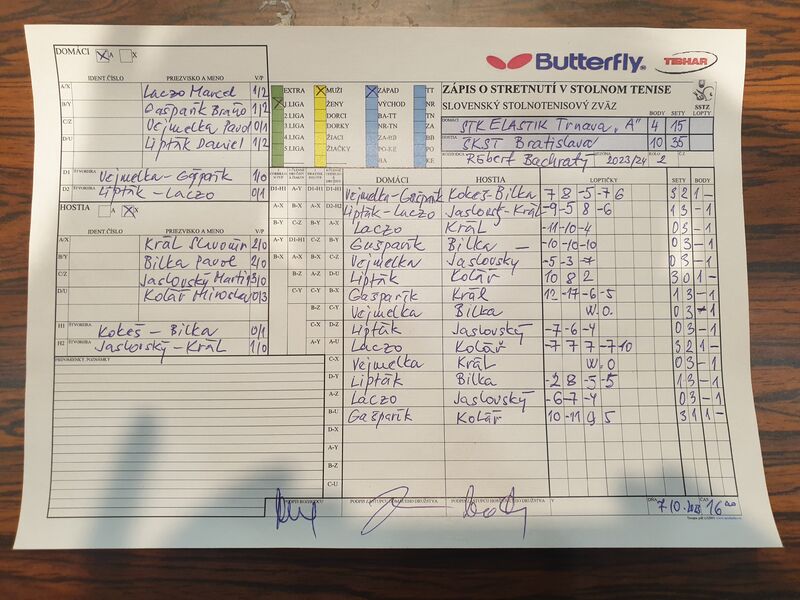 DOMÁCI A X
Butterfly TIBHAR
IDENT. ČÍSLO PRIEZVISKO A MENO V/P
A/X Laczo Marcel 1/2
B/Y Gašparík Braňo 1/2
C/Z Vejmelka Pavol 0/1
D/U Lipták Daniel 1/2
D1 ŠTVORHRA Vejmelka-Gašparík 1/0
D2 ŠTVORHRA Lipták-Laczo 0/1
HOSTIA A X
IDENT. ČÍSLO PRIEZVISKO A MENO V/P
A/X Král Slavomír 2/0
B/Y Bilka Pavol 2/0
C/Z Jaslovský Martin 3/0
D/U Kolář Miroslav 0/3
H1 ŠTVORHRA Kokeš - Bilka 0/1
H2 ŠTVORHRA Jaslovský - Král 1/0
PRIPOMIENKY, POZNÁMKY
EXTRA MUŽI ZÁPAD TT
1.LIGA ŽENY VÝCHOD NR
2.LIGA DORCI BA-TT TN
3.LIGA DORKY NR-TN ZA
4.LIGA ŽIACI ZA-BB BB
5.LIGA ŽIAČKY PO-KE PO
BA KE
ZÁPIS O STRETNUTÍ V STOLNOM TENISE
SLOVENSKÝ STOLNOTENISOVÝ ZVÄZ SSTZ
BODY SETY LOPTY
DOMÁCI STK ELASTIK Trnava "A" 4 15
HOSTIA ŠKST Bratislava 10 35
ROZHODCA Róbert Bachratý 2023/24 2
DOMÁCI HOSTIA LOPTIČKY SETY BODY
Vejmelka-Gašparík Kokeš-Bilka 7 8 -5 -7 6 3 2 1 -
Lipták-Laczo Jaslovský-Král -9 -5 8 -6 1 3 - 1
Laczo Král -11 -10 -4 0 3 - 1
Gašparík Bilka -10 -10 -10 0 3 - 1
Vejmelka Jaslovský -5 -3 -7 0 3 - 1
Lipták Kolář 10 8 2 3 0 1 -
Gašparík Král 12 -17 -6 -5 1 3 - 1
Vejmelka Bilka W.O. 0 3 - 1
Lipták Jaslovský -7 -6 -4 0 3 - 1
Laczo Kolář -7 7 7 -7 10 3 2 1 -
Vejmelka Král W.O 0 3 - 1
Lipták Bilka -2 8 -5 -5 1 3 - 1
Laczo Jaslovský -6 -7 -4 0 3 - 1
Gašparík Kolář 10 -11 9 5 3 1 1 -
PODPIS ROZHODCU PODPIS ZÁSTUPCU DOMÁCEHO DRUŽSTVA PODPIS ZÁSTUPCU HOSŤUJÚCEHO DRUŽSTVA V DŇA 7.10.2023 ČAS 16.00